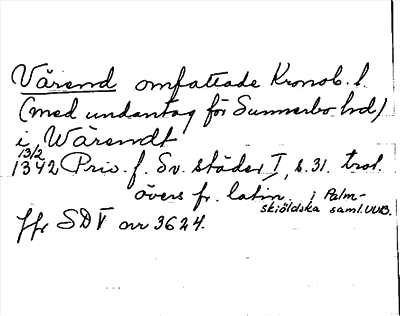 Värend omfattade Kronob. l.
(med undantag för Sunnerbo hd)
i Wärendt
13/2
1342 Priv. f. Sv. städer I, s. 31. trol.
övers fr. latin. i Palm-
skiöldska saml. UUB.
jfr SD V nr 3624.